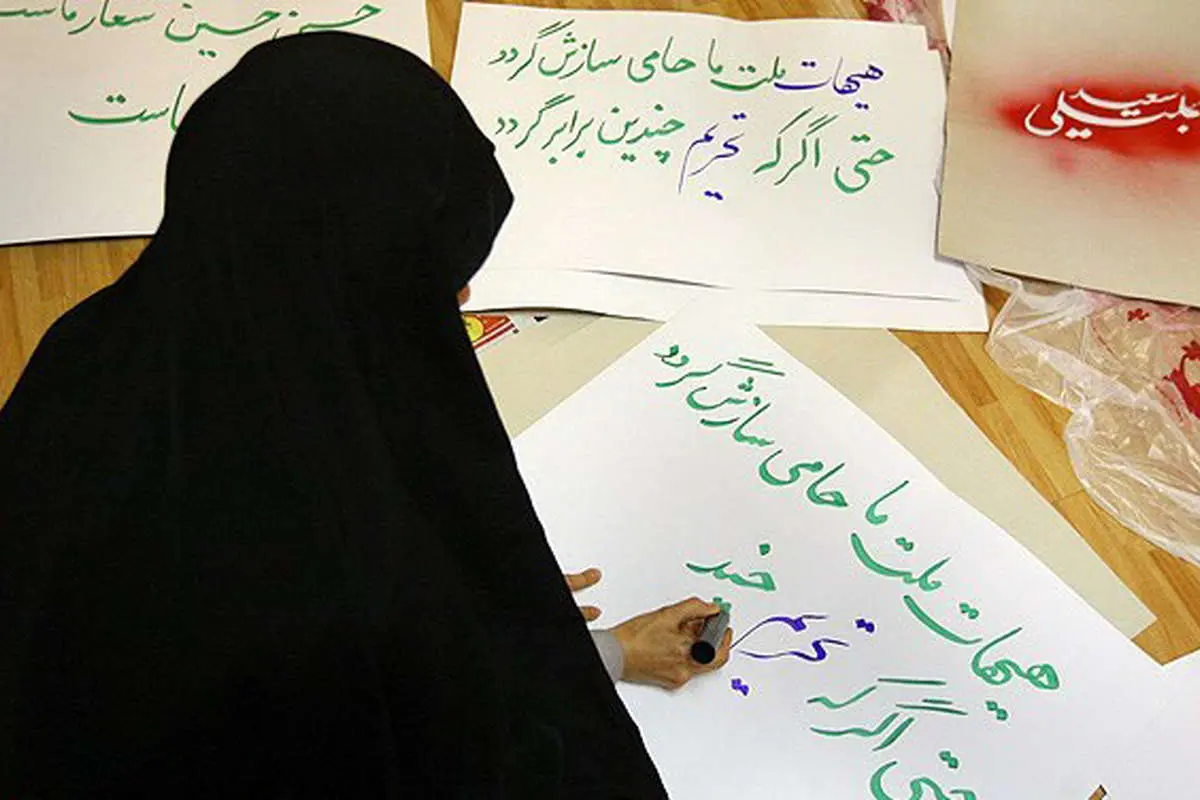 حسین حسین شعار ماست
است
هیهات ملت ما حامی سازش گردد
حتی اگر که تحریم چندین برابر گردد
سعید
جلیلی
هیهات ملت ما حامی سازش گردد
حتی اگر که تحریم چند